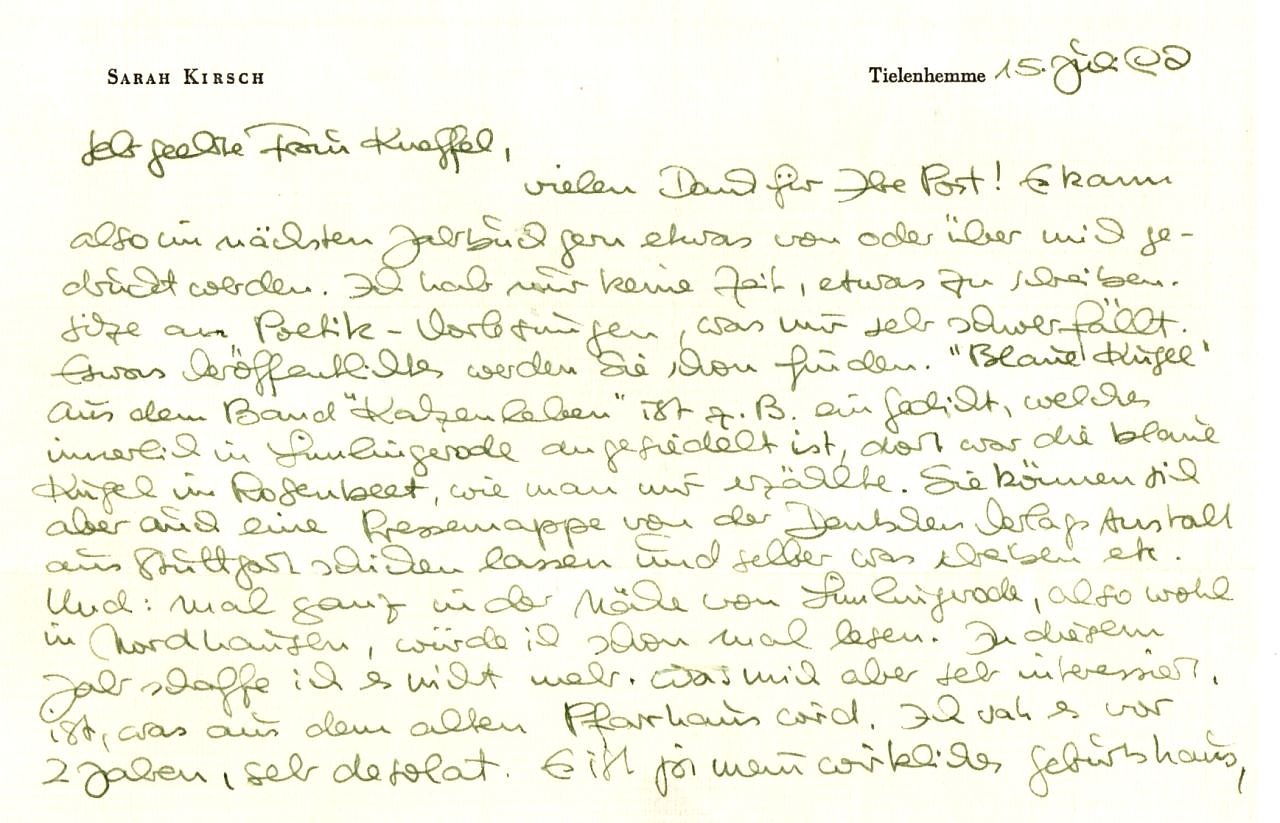 SARAH KIRSCH Tielenhemme 15. Juli
Sehr geehrte Frau Kneffel,
vielen Dank für Ihre Post! Es kann
also im nächsten Jahrbuch gern etwas von oder über mich ge-
druckt werden. Ich hab nur keine Zeit, etwas zu schreiben.
Sitze an Poetik-Vorlesungen, was mir sehr schwer fällt.
Etwas Veröffentlichtes werden Sie schon finden. "Blaue Kugel"
aus dem Band "Katzenleben" ist z.B. ein Gedicht, welches
innerlich in Limlingerode angesiedelt ist, dort war die blaue
Kugel im Rosenbeet, wie man mir erzählte. Sie können sich
aber auch eine Pressemappe von der Deutschen Verlags Anstalt
aus Stuttgart schicken lassen und selber was schreiben etc.
Und: mal ganz in der Nähe von Limlingerode, also wohl
in Nordhausen, würde ich schon mal lesen. In diesem
Jahr schaffe ich es nicht mehr. Was mich aber sehr interessiert,
ist, was aus dem alten Pfarrhaus wird. Ich sah es vor
2 Jahren, sehr desolat. Es ist ja mein wirkliches Geburtshaus,